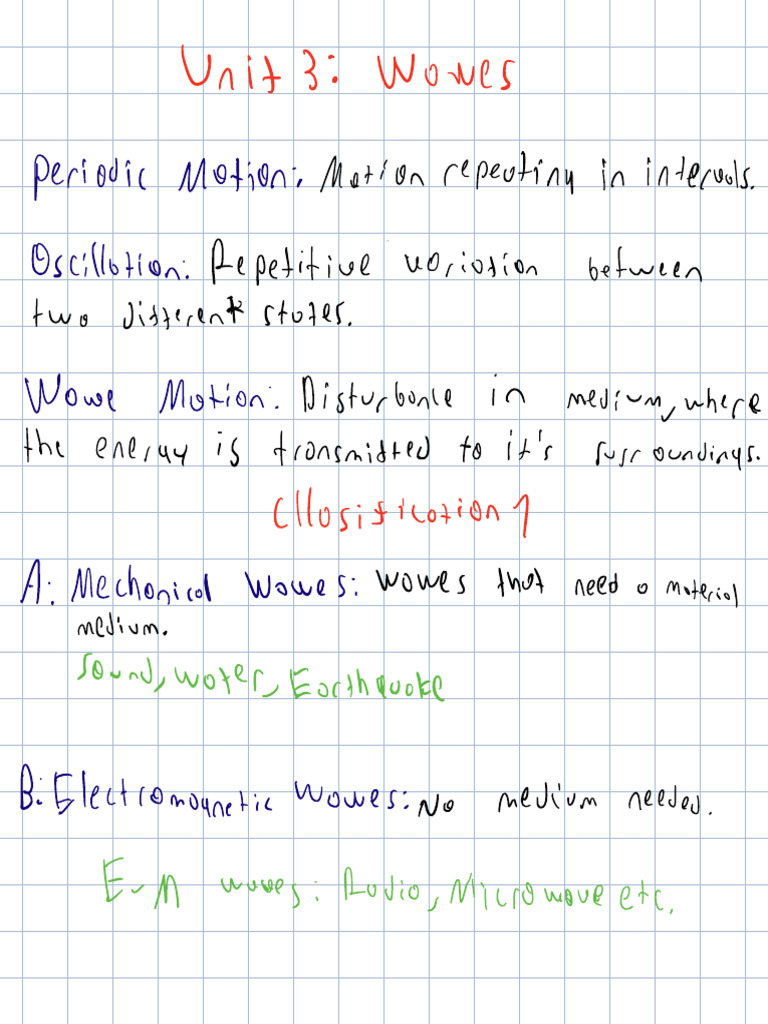 Unit 3: Waves
Periodic Motion: Motion repeating in intervals.
Oscillation: Repetitive variation between
two different states.
Wave Motion: Disturbance in medium, where
the energy is transmitted to it's surroundings.
Cllasification 1
A: Mechanical waves: waves that need a material
medium.
Sound, water, Earthquake
B: Electromagnetic waves: No medium needed.
E-M waves: Radio, Microwave etc.